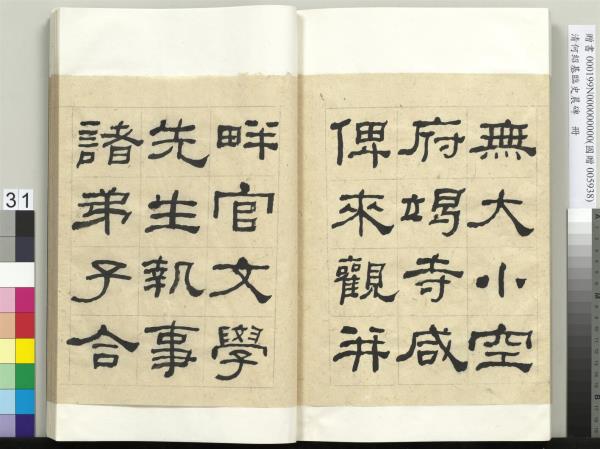 贈書 000199N000000000(國贈 005938)
清何紹基臨史晨碑 冊
無大小空
府竭寺咸
俾來觀并
畔官文學
先生執事
諸弟子合
31
A
M
B